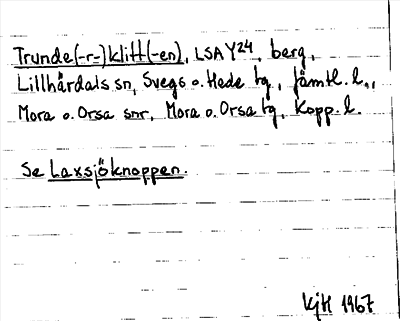 Trunde(-r-)klitt(-en), LSA Y24, berg,
Lillhärdals sn, Svegs o. Hede tg, Jämtl. l.,
Mora o. Orsa snr, Mora o. Orsa tg, Kopp. l.
Se Laxsjöknoppen.
KjH 1967